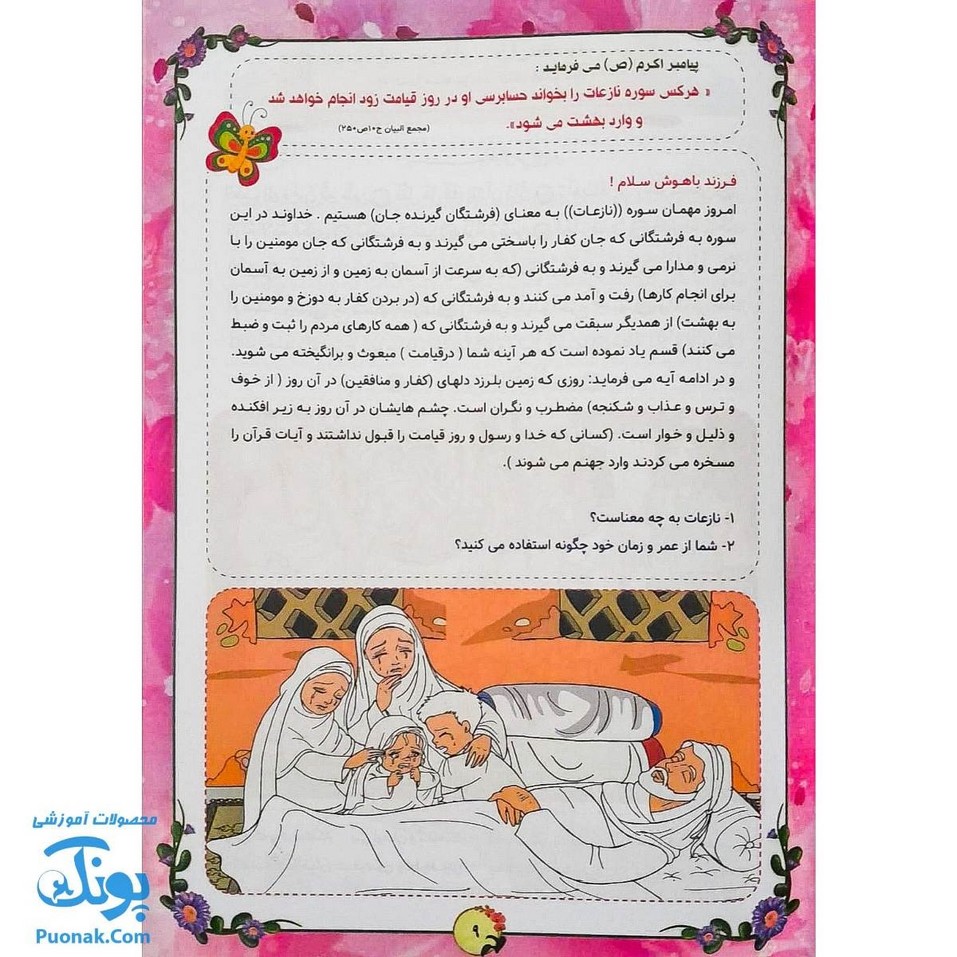 پیامبر اکرم (ص) می فرماید :
« هرکس سوره نازعات را بخواند حسابرسی او در روز قیامت زود انجام خواهد شد
و وارد بهشت می شود».
(مجمع البیان ج۱۰ص۲۵۰)
فرزند باهوش سلام !
امروز مهمان سوره ((نازعات)) به معنای (فرشتگان گیرنده جان) هستیم . خداوند در این
سوره به فرشتگانی که جان کفار را باسختی می گیرند و به فرشتگانی که جان مومنین را با
نرمی و مدارا می گیرند و به فرشتگانی (که به سرعت از آسمان به زمین و از زمین به آسمان
برای انجام کارها) رفت و آمد می کنند و به فرشتگانی که (در بردن کفار به دوزخ و مومنین را
به بهشت) از همدیگر سبقت می گیرند و به فرشتگانی که ( همه کارهای مردم را ثبت و ضبط
می کنند) قسم یاد نموده است که هر آینه شما ( درقیامت ) مبعوث و برانگیخته می شوید.
و در ادامه آیه می فرماید: روزی که زمین بلرزد دلهای (کفار و منافقین) در آن روز ( از خوف
و ترس و عذاب و شکنجه) مضطرب و نگران است. چشم هایشان در آن روز به زیر افکنده
و ذلیل و خوار است. (کسانی که خدا و رسول و روز قیامت را قبول نداشتند و آیات قرآن را
مسخره می کردند وارد جهنم می شوند ).
۱- نازعات به چه معناست؟
۲- شما از عمر و زمان خود چگونه استفاده می کنید؟
محصولات آموزشی
پونک
Puonak.Com
۹